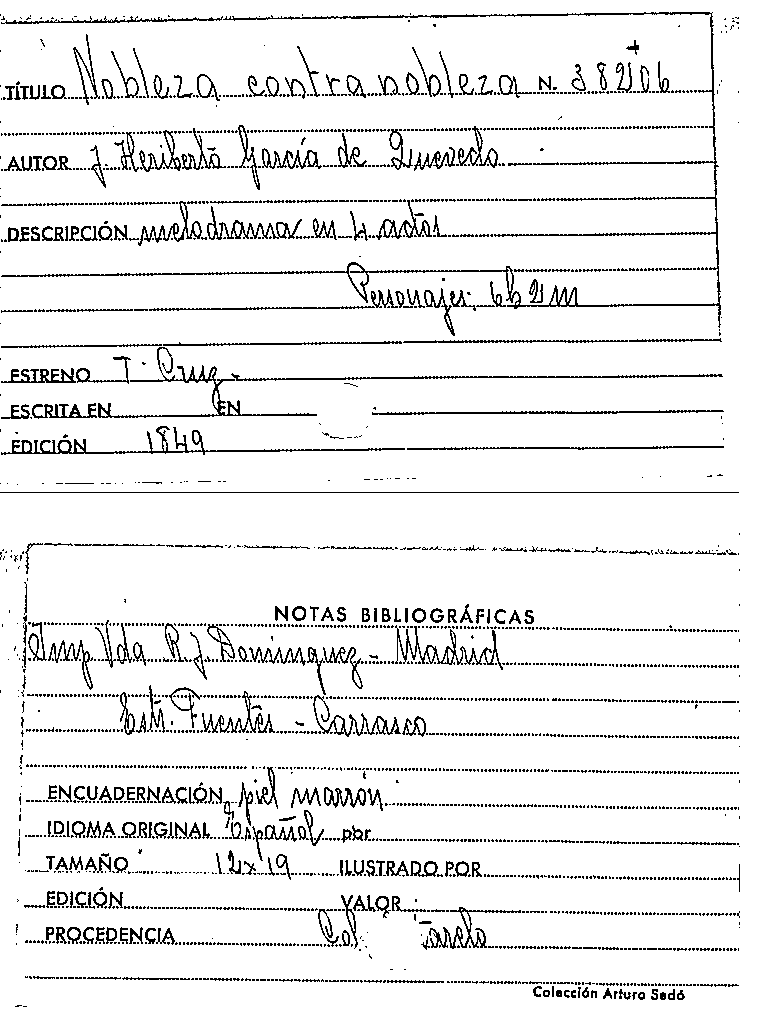 TÍTULO Nobleza contra nobleza N. 38206
AUTOR J. Heriberto García de Quevedo
DESCRIPCIÓN melodrama en 4 actos
Personajes: 6h 2m
ESTRENO T. Cruz.
ESCRITA EN EN
EDICIÓN 1849
NOTAS BIBLIOGRÁFICAS
Imp Vda R. J. Dominguez - Madrid
Estr. Fuentes - Carrasco
ENCUADERNACIÓN piel marrón
IDIOMA ORIGINAL Español por
TAMAÑO 12x19 ILUSTRADO POR
EDICIÓN VALOR
PROCEDENCIA Col.
Colección Arturo Sedó